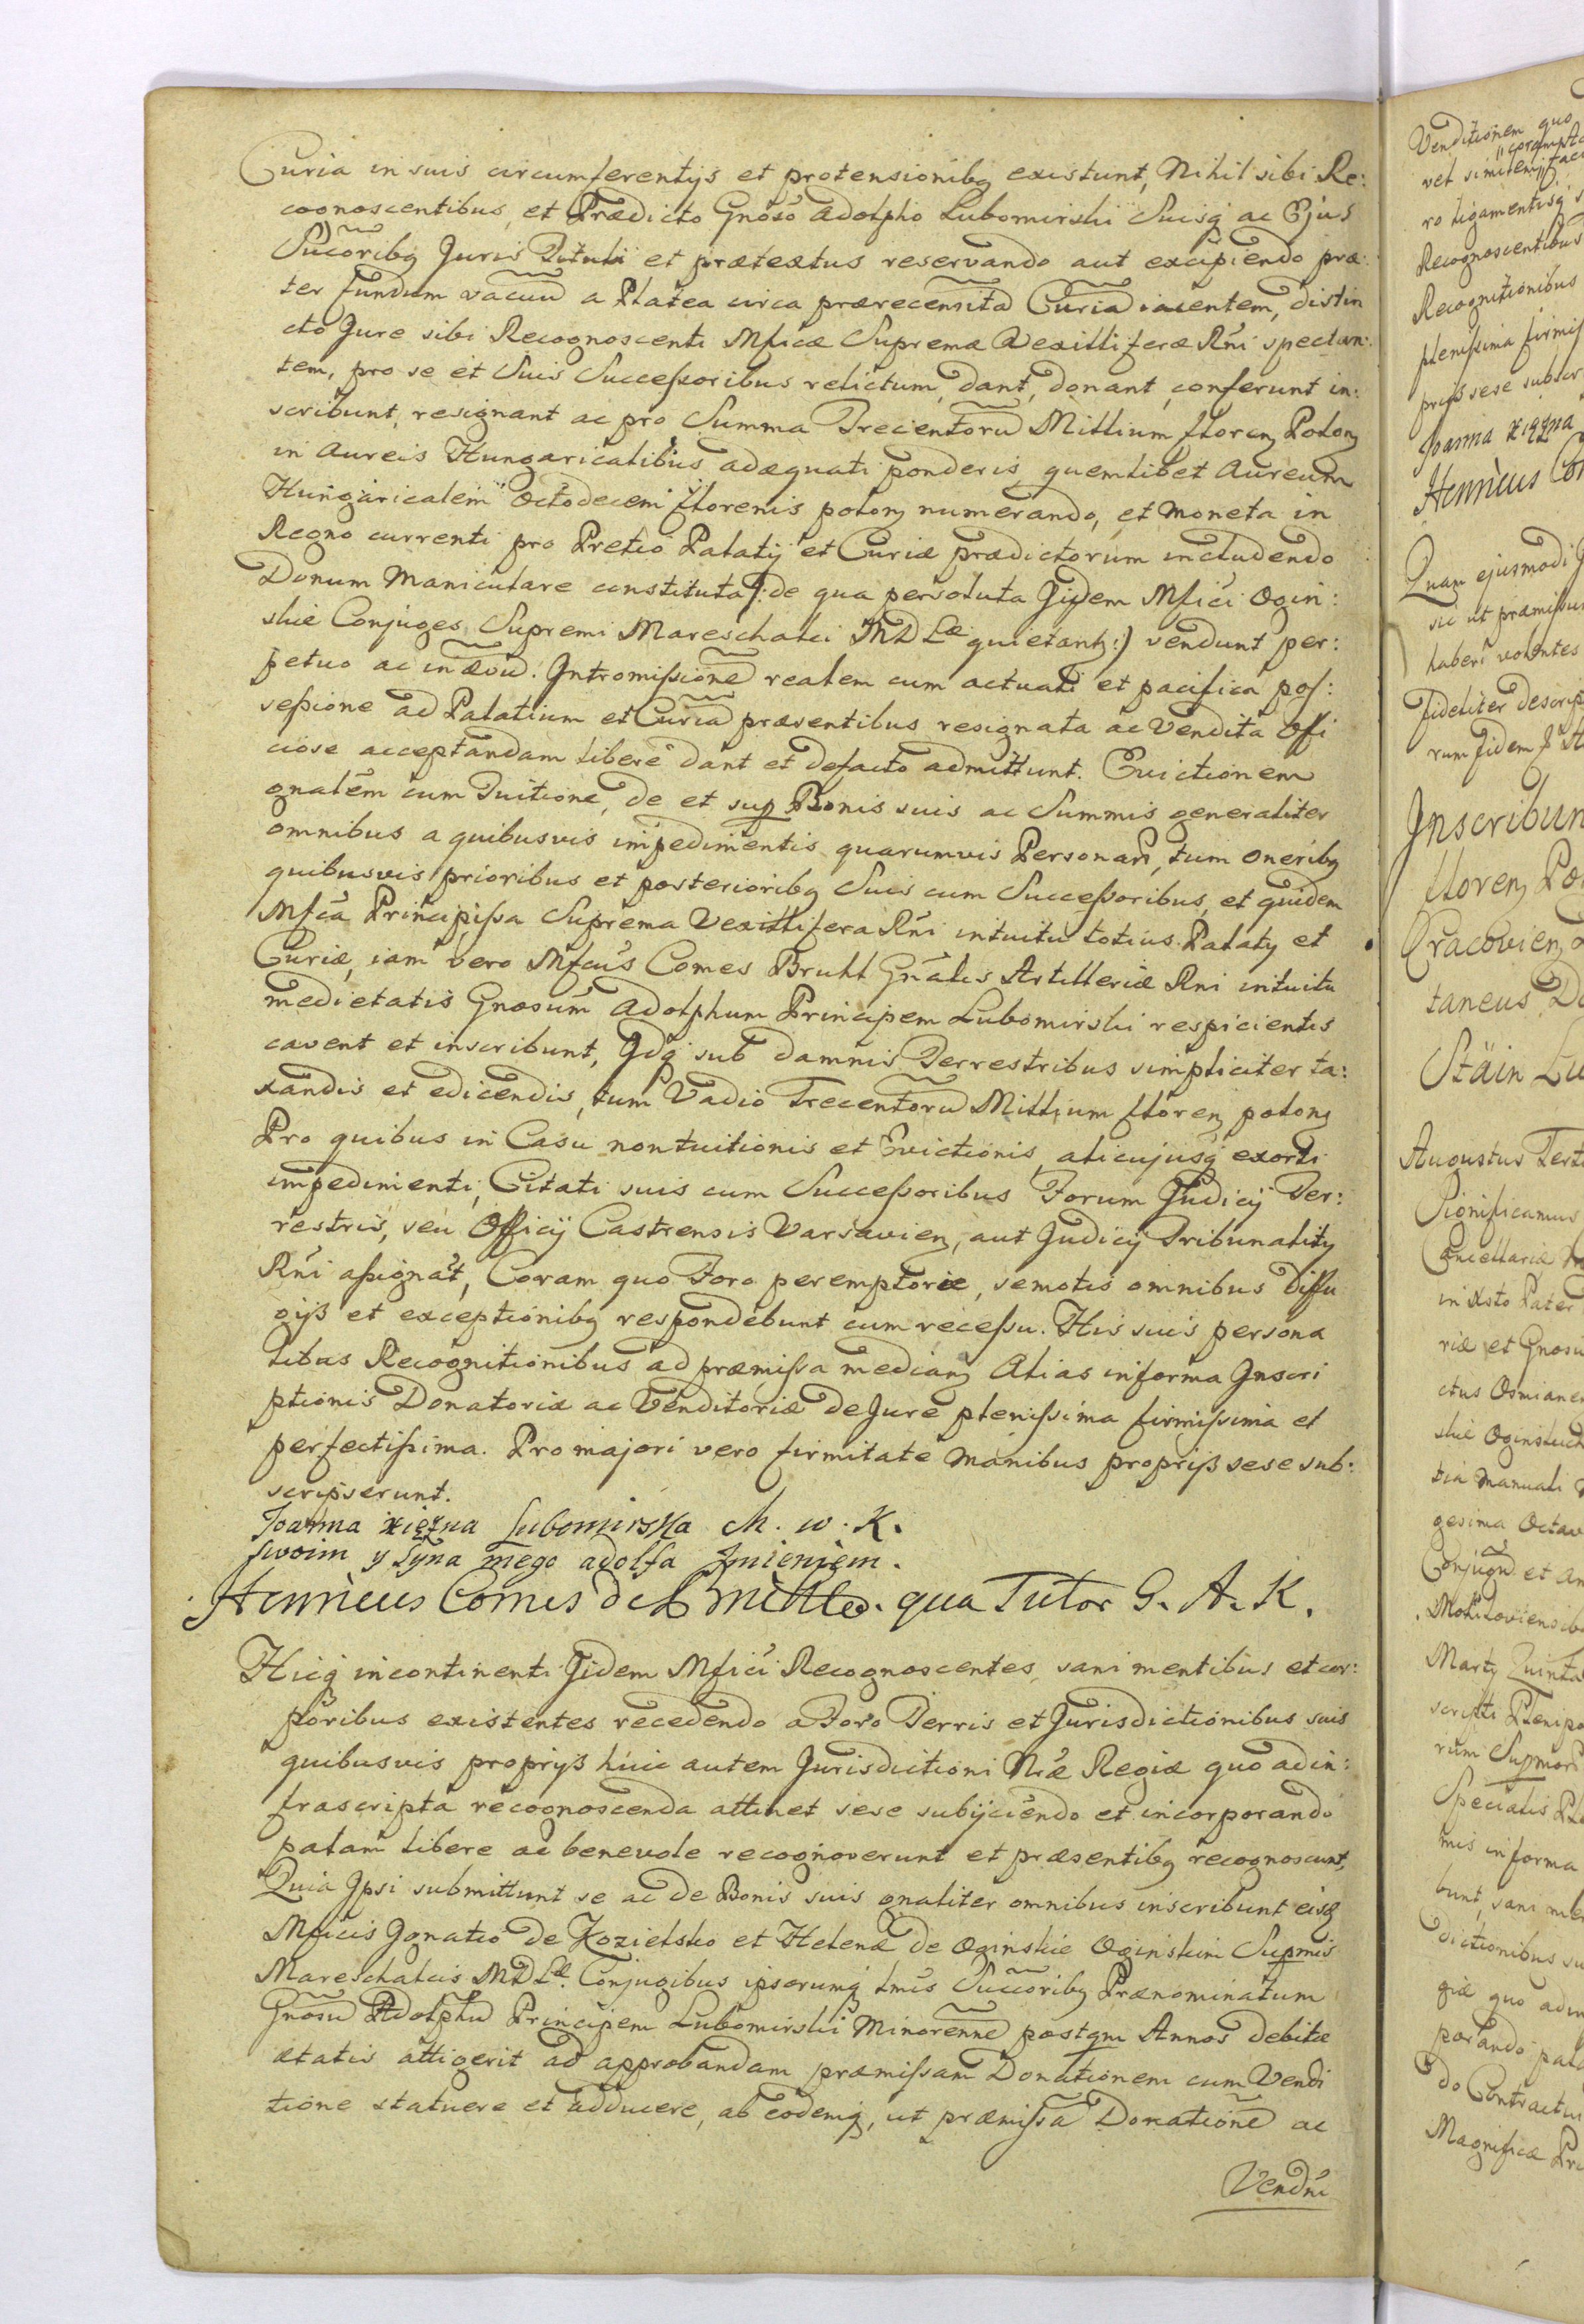 Curia in suis circumferentijs et protensionibq existunt, Nihil sibi Re:
cognoscentibus, et Prædicto Gnoso Adolpho Lubomirski Suisq ac Ejus
Sucoribq Juris Tituli et prætextus reservando aut excipiendo præ:
ter fundum vacuu a Platea circa prærecensita Curia iacentem, distin
cto Jure sibi Recognoscenti Mficæ Supremæ Vexilliferæ Rni spectan:
tem, pro se et Suis Successoribus relictum, dant, donant, conferunt in:
scribunt, resignant ac pro Summa Trecentoru Millium floreņ Polonɉ
in Aureis Hungaricalibus adæquati ponderis quemlibet Aureum
Hungaricalem Octodecem florenis polonɉ numerando, et Moneta in
Regno currenti pro Pretio Palatij et Curiæ prædictorum includendo
Donum Maniculare constituta /: de qua persoluta Jidem Mfici Ogin:
skie Conjuges, Supremi Mareschalci MDLæ quietantɉ :) vendunt per:
petuo ac in ævu. Intromissione realem cum actuali et pacifica pos:
sessione ad Palatium et Curia præsentibus resignata ac Vendita Offi
ciose acceptandam libere dant et defacto admittunt. Evictionem
gnalem cum Tuitione, de et sup Bonis suis ac Summis generaliter
omnibus a quibusvis impedimentis quarumvis Personar, tum Oneribq
quibusvis prioribus et posterioribq Suis cum Successoribus, et quidem
Mfca Principissa Suprema Vexillifera Rni intuitu totius Palatij et
Curiæ, iam vero Mfcus Comes Bruhl Gnalis Artilleriæ Rni intuitu
medietatis Gnosum Adolphum Principem Lubomirski respicientis
cavent et inscribunt, Idq sub damnis Terrestribus simpliciter ta:
xandis et edicendis, tum Vadio Trecentoru Millium floreņ polonɉ
Pro quibus in Casu nontuitionis et Evictionis alicujusq exorti
impedimenti, Citati suis cum Successoribus Forum Judicij Ter:
restris, seu Officij Castrensis Varsavienɉ, aut Judicij Tribunalitij
Rni assignat, Coram quo Foro peremptorie, semotis omnibus diffu
gijs et exceptionibq respondebunt cum recessu. His suis persona
libus Recognitionibus ad præmissa medianɉ Alias in forma Inscri
ptionis Donatoriæ ac Venditoriæ de Jure plenissima firmissima et
perfectissima. Pro majori vero firmitate Manibus proprijs sese sub:
scripserunt.
Joanna xiężna Lubomirska Ch. w. K.
swoim y Syna mego adolfa Jmieniem.
Henricus Comes de Brühl. qua Tutor G. A. K.
Hicq incontinenti Jidem Mfici Recognoscentes sani mentibus et cor:
poribus existentes recedendo a Foro Terris et Jurisdictionibus suis
quibusvis proprijs huic autem Jurisdictioni Nræ Regiæ quo ad in:
frascripta recognoscenda attinet sese subijciendo et incorporando
palam libere ac benevole recognoverunt et præsentibq recognoscunt,
Quia Ipsi submittunt se ac de Bonis suis gnaliter omnibus inscribunt eisq
Mficis Ignatio de Kozielsko et Helenæ de Oginskie Oginskim Supmis
Mareschalcis MDLæ Conjugibus ipsorumq tmis Succoribq Prænominatum
Gnosu Adolphu Principem Lubomirski Minorenne postqm Annos debitæ
ætatis attigerit ad approbandam præmissam Donationem cum Vendi
tione statuere et adducere, ab eodemq, ut præmissa Donatione ac
Vendni
Venditionem quo
vel similem
ro ligamentisq s
Recognoscentibus
Recognitionibus
plenissima firmis
prijs sese subscr
Joanna xiężna
Henricus Co
Quam ejusmodi J
sic ut præmissu
haberi volentes
fideliter descrip
rum fidem
Inscribun
florenɉ
Cracovienɉ
taneus
Stäin Lu
Augustus Terti
Significamus
Cancellariæ
in Xsto Pater
riæ et Gnosu
ctus Osmianen
skie Oginskich
tia Manuali
gesima Octav
Conjugu et An
Mohiloviensib
Martij Quinta
scripti Plenipo
rum Supmor
Specialis Ple
mis in forma
bunt, sani me
dictionibus su
giæ quo adin
porando pala
do Contractus
Magnificæ Pri